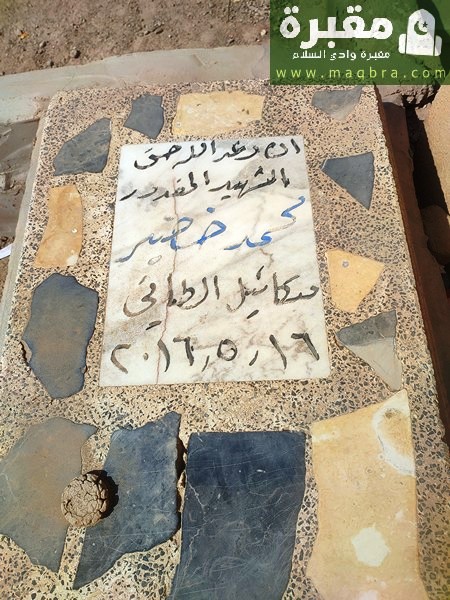 مقبرة
مقبرة وادي السلام
www.maqbra.com
ان وعد الله حق
الشهيد المغدور
محمد خضير
ميكائيل الطائي
٢٠١٦٫٥٫١٦